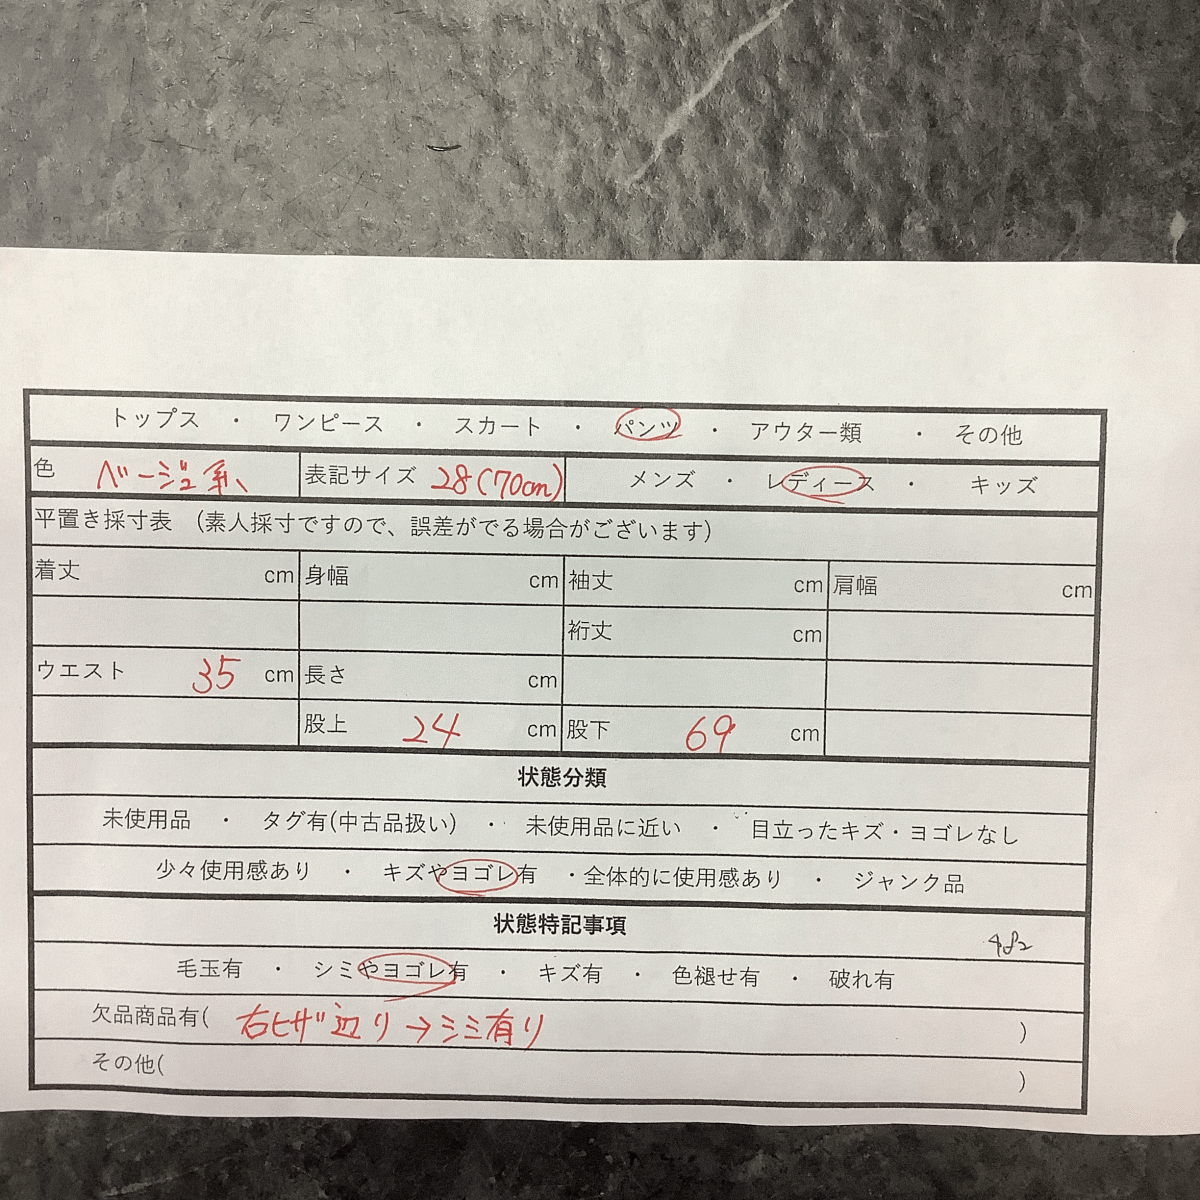 トップス ・ ワンピース ・ スカート ・ パンツ ・ アウター類 ・ その他
色 ベージュ系、 表記サイズ 28(70cm) メンズ ・ レディース ・ キッズ
平置き採寸表 (素人採寸ですので、誤差がでる場合がございます)
着丈 cm 身幅 cm 袖丈 cm 肩幅 cm
裄丈 cm
ウエスト 35 cm 長さ cm
股上 24 cm 股下 69 cm
状態分類
未使用品 ・ タグ有(中古品扱い) ・ 未使用品に近い ・ 目立ったキズ・ヨゴレなし
少々使用感あり ・ キズやヨゴレ有 ・全体的に使用感あり ・ ジャンク品
状態特記事項
毛玉有 ・ シミやヨゴレ有 ・ キズ有 ・ 色褪せ有 ・ 破れ有
欠品商品有( 右ヒザ辺り→シミ有り )
その他( )